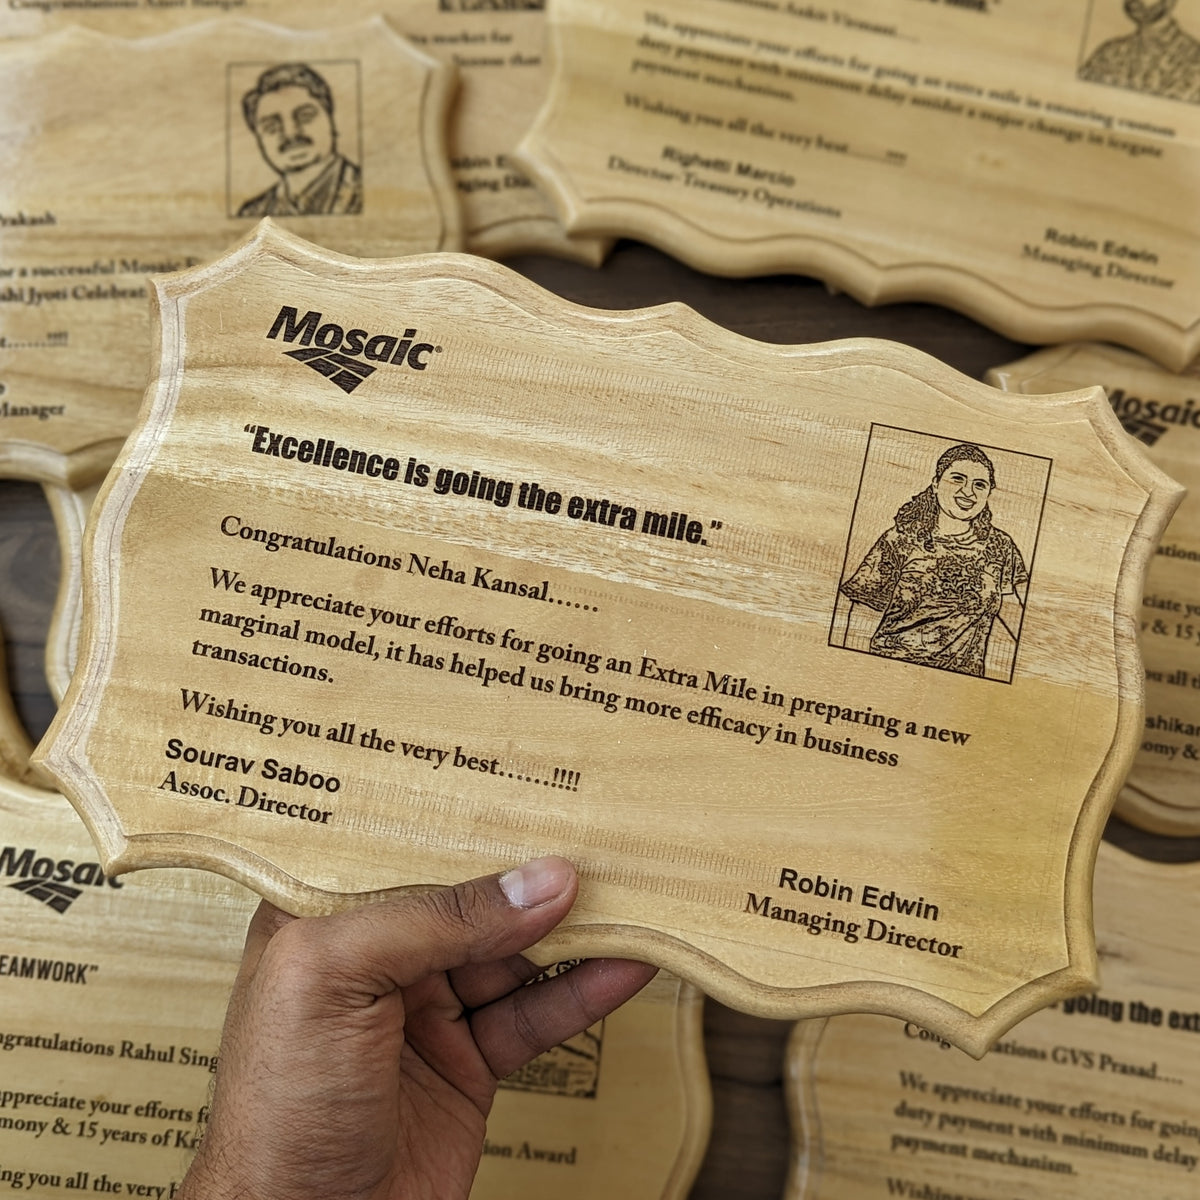 Congratulations
market for
Prakash
or a successful Mosaic
shi Jyoti Celebrat
t........!!!!
Manager
We appreciate your efforts for going an extra mile in ensuring custom
duty payment with minimum delay amidst a major change in icegate
payment mechanism.
Wishing you all the very best........!!!!
Righetti Marcio
Director-Treasury Operations
Robin Edwin
Managing Director
Mosaic®
“Excellence is going the extra mile.”
Congratulations Neha Kansal……
We appreciate your efforts for going an Extra Mile in preparing a new
marginal model, it has helped us bring more efficacy in business
transactions.
Wishing you all the very best…….!!!!
Sourav Saboo
Assoc. Director
Robin Edwin
Managing Director
Mosaic
Mosaic
EAMWORK”
ngratulations Rahul Sing
appreciate your efforts f
mony & 15 years of Kri
ing you all the very b
ion Award
going the ext
GVS Prasad....
We appreciate your efforts for going
duty payment with minimum delay
payment mechanism.
Wishing